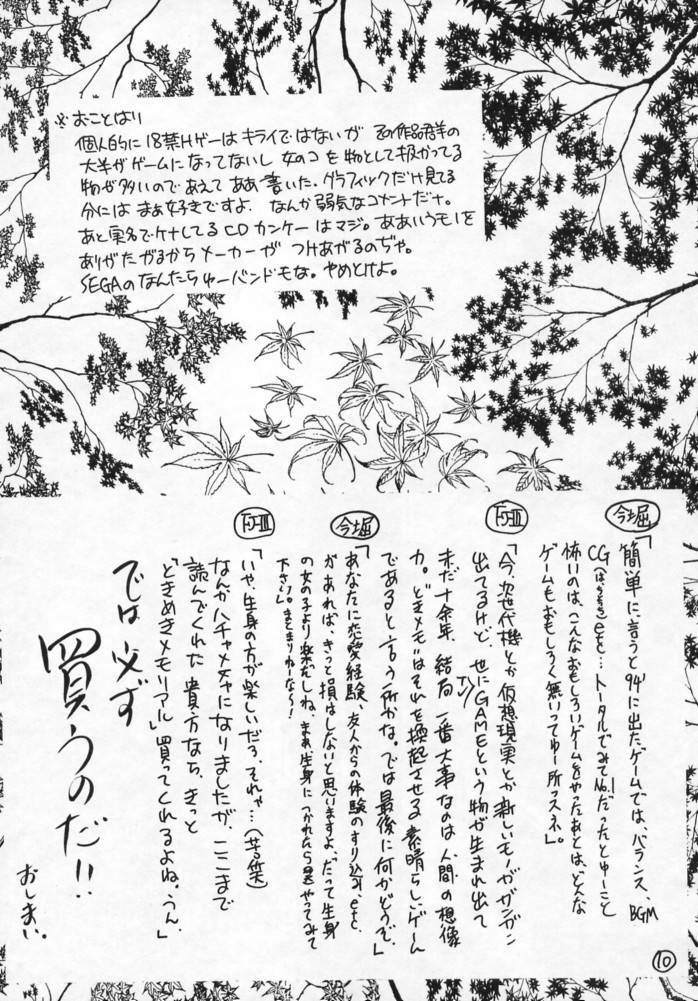 ※おことはり
個人的に18禁Hゲーはキライではないが その作品群の
大半がゲームになってないし 女のコを物として扱かってる
物が多いのであえてああ書いた。グラフィックだけ見てる
分には まぁ好きですよ。なんか弱気なコメントだナ。
あと実名でケナしてるCDカンケーはマジ。ああいうモノを
ありがたがるからメーカーが つけあがるのぢゃ。
SEGAのなんたらゅーバンドモな。やめとけよ。
今堀
「簡単に、言うと94'に出たゲームでは、バランス、BGM
CG etc…トータルでみてNo.1だったとゆーこと
怖いのは、こんなおもしろいゲームをやったあとは、どんな
ゲームもおもしろく無いってゆー所っスネ」。
「今、次世代機とか 仮想現実とか新しいモノがガンガン
出てるけど、世にGAMEという物が生まれ出て
未だ十余年、結局 一番大事なのは 人間の想像
力。"ときメモ"はそれを喚起させる素晴らしいゲーム
であると言う所かな。では最後に何かどうぞ。」
今堀
「あなたに恋愛経験、友人からの体験のすり込み etc
があれば、きっと損はしないと思いますよ、だって生身
の女の子より楽だしね、まぁ、生身に つかれたら やってみて
下さい。まとまりゆーな〜!
「いや、生身の方が楽しいだろ、それゃ…(苦笑)
なんかハチャメチャになりましたが、ここまで
読んでくれた 貴方なら、きっと
「ときめきメモリアル」買ってくれるよね。うん。」
では必ず
買うのだ!!
おしまい。
10